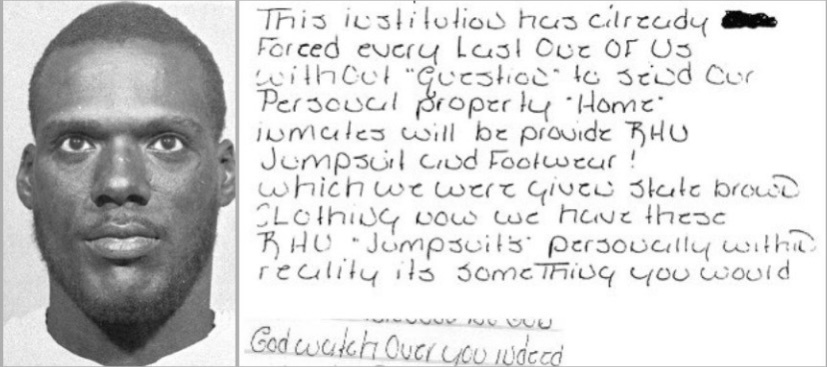 This institution has already
Forced every Last One Of Us
without "Question" to send Our
Personal property "Home"
inmates will be provide RHU
Jumpsuit and Footwear!
which we were given state brown
CLothing now we have these
RHU "Jumpsuits" personally within
reality its someThing you would
God watch Over you indeed